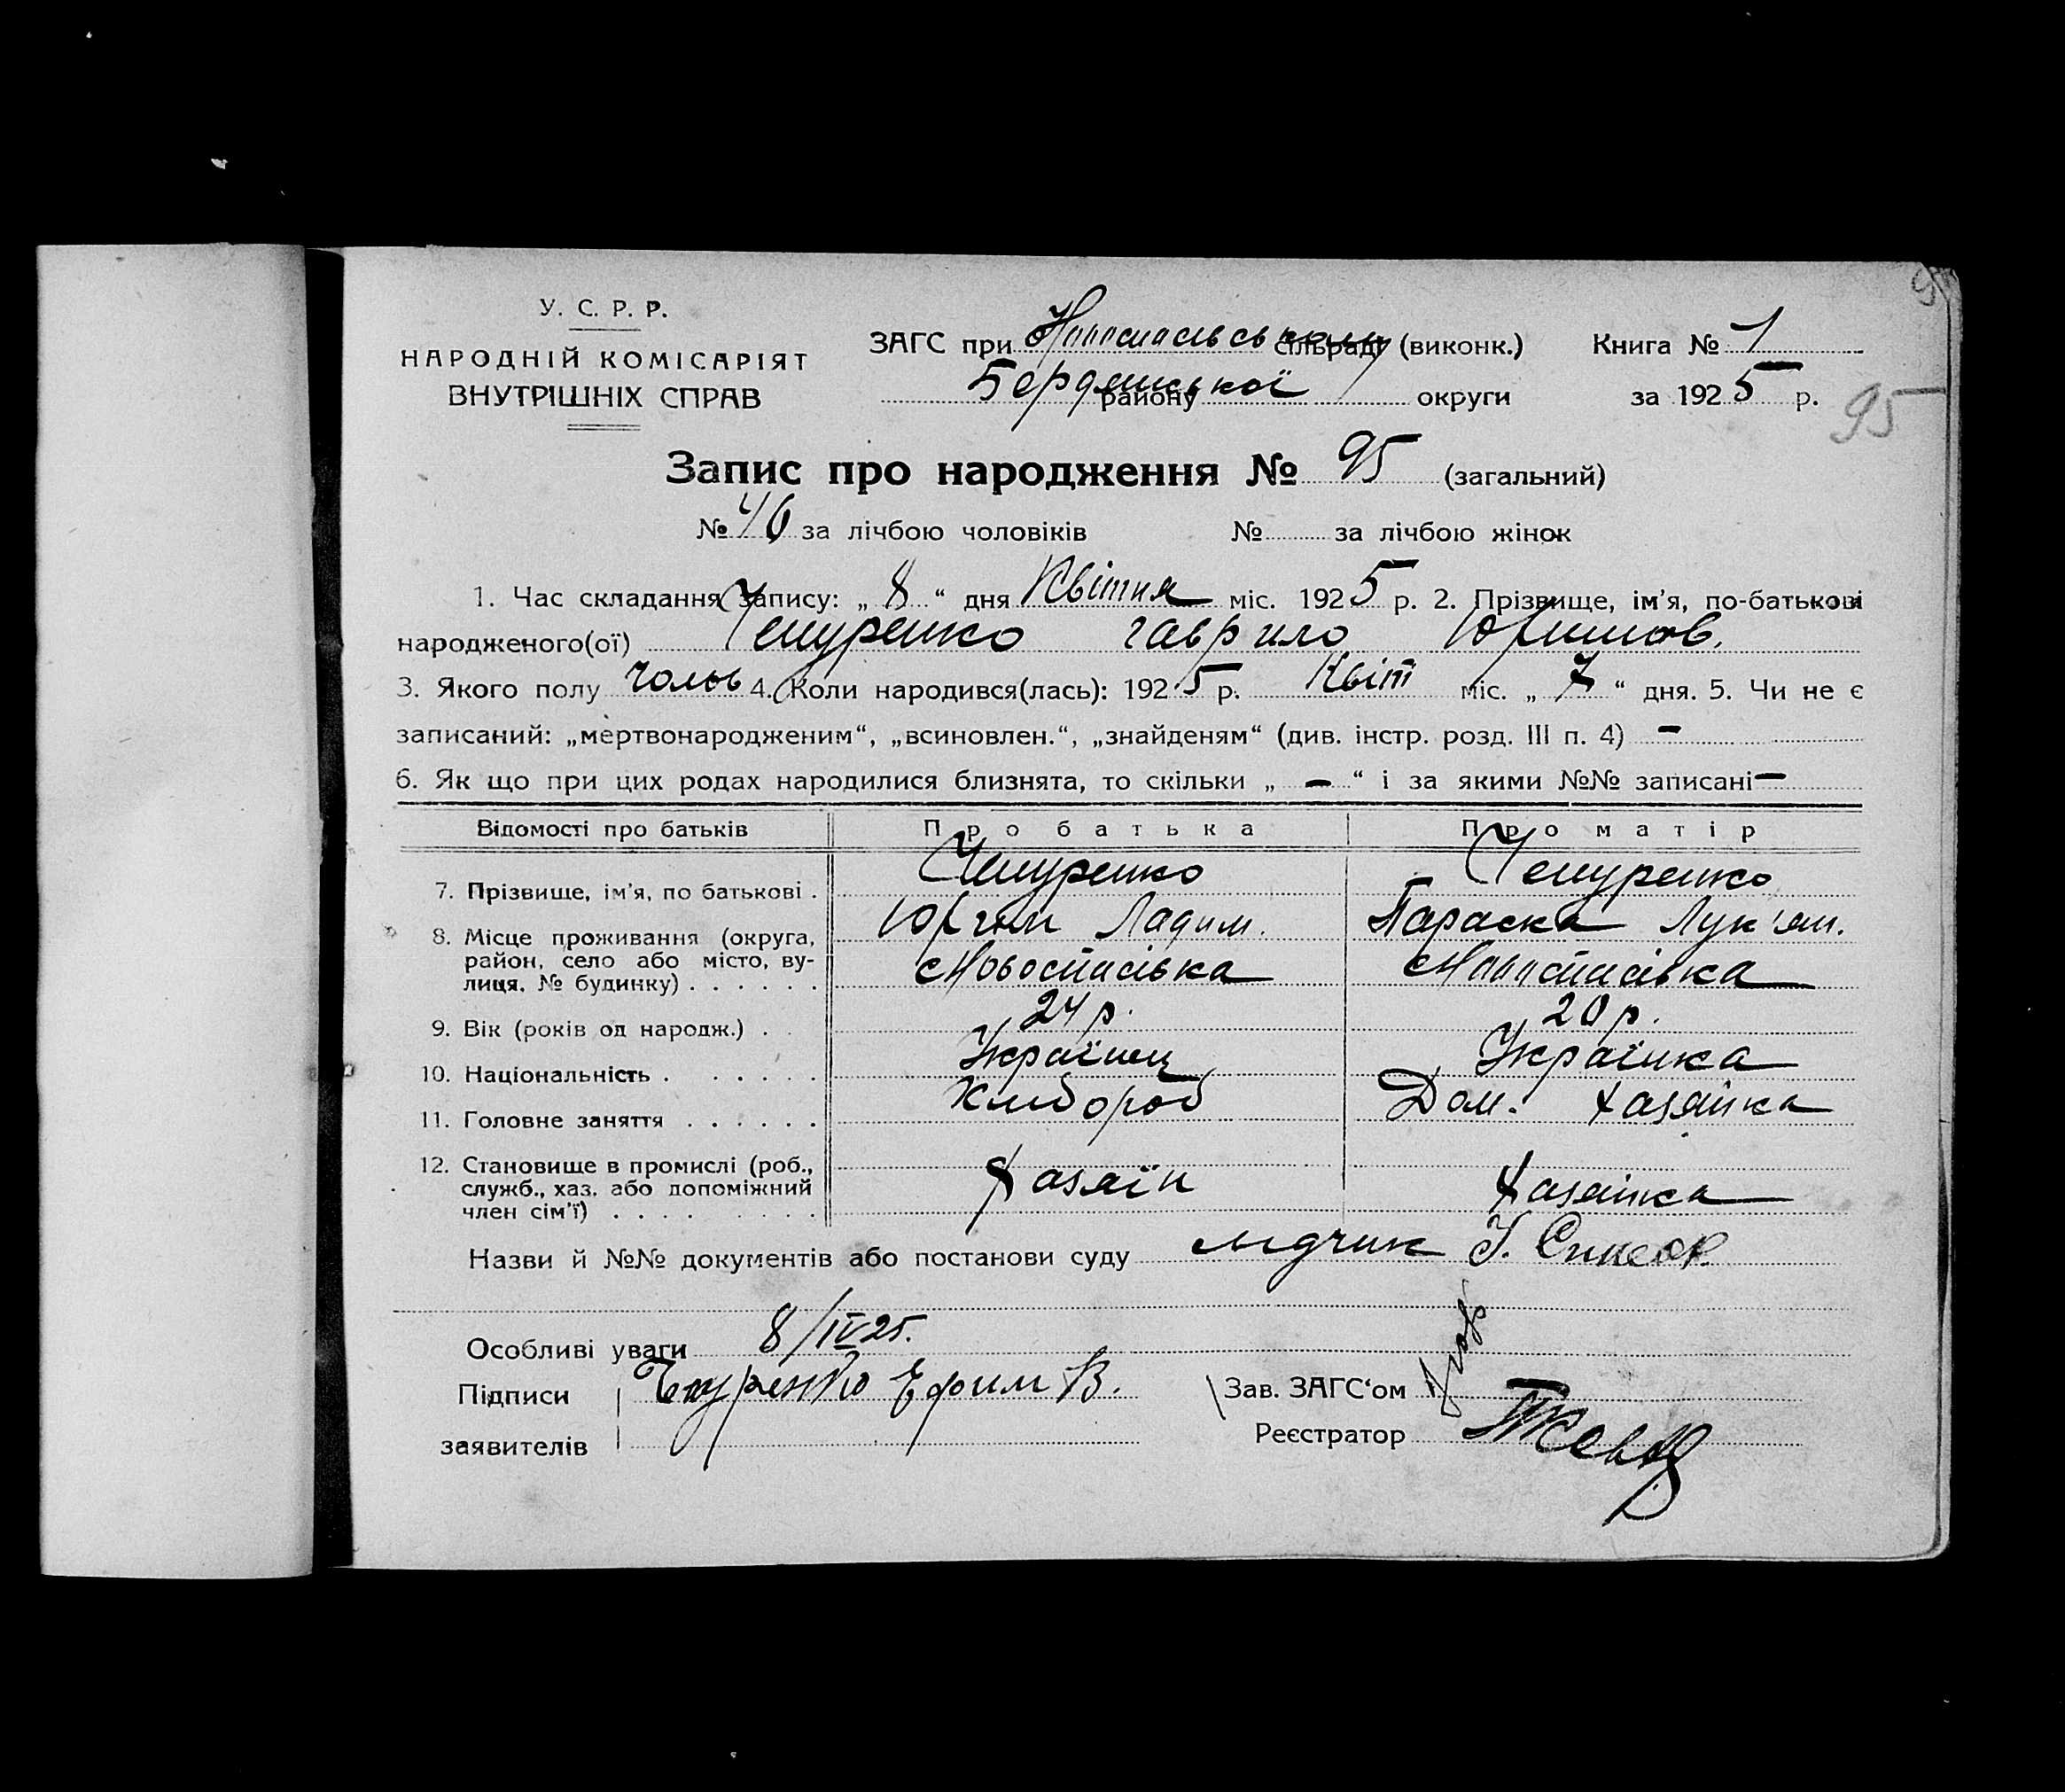 У. С. Р. Р.
НАРОДНІЙ КОМІСАРІЯТ
ВНУТРІШНІХ СПРАВ
ЗАГС при сільраді (виконк.) Книга № 1
Бердянської району округи за 1925 р.
95
Запис про народження № 95 (загальний)
№ 46 за лічбою чоловіків № за лічбою жінок
1. Час складання запису: „ 8 “ дня Квітня міс. 1925 р. 2. Прізвище, ім’я, по-батькові
народженого(ої) Чепуренко Гаврило
3. Якого полу чолов 4. Коли народився(лась): 1925 р. Квіт міс. „ 7 “ дня. 5. Чи не є
записаний: „мертвонародженим“, „всиновлен.“, „знайденям“ (див. інстр. розд. III п. 4) –
6. Як що при цих родах народилися близнята, то скільки „ – “ і за якими №№ записані –
Відомості про батьків Про батька Про матір
7. Прізвище, ім’я, по батькові . Чепуренко Чепуренко
Ладим. Параска Лук'ян.
8. Місце проживання (округа, район, село або місто, вулиця, № будинку) . . . . . . Новоспасівка Новоспасівка
9. Вік (років од народж.) . . 24 р. 20 р.
10. Національність . . . . . . Українец Українка
11. Головне заняття . . . . . . Хлібороб Дом. Хазяйка
12. Становище в промислі (роб., служб., хаз. або допоміжний член сім’ї) . . . . Хазяїн Хазяйка
Назви й №№ документів або постанови суду
Особливі уваги 8/IV 25.
Підписи Чепуренко Ефим В. Зав. ЗАГС‘ом
заявителів Реєстратор